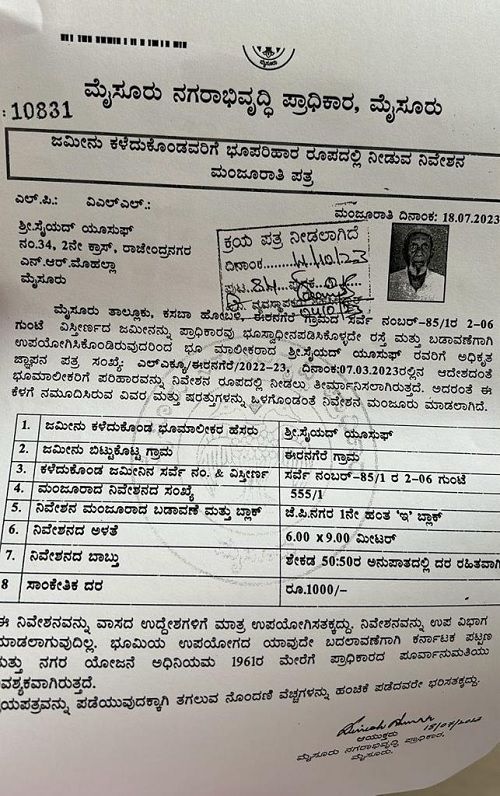 ಮೈಸೂರು
ಮೈಸೂರು ನಗರಾಭಿವೃದ್ಧಿ ಪ್ರಾಧಿಕಾರ, ಮೈಸೂರು
:10831
ಜಮೀನು ಕಳೆದುಕೊಂಡವರಿಗೆ ಭೂಪರಿಹಾರ ರೂಪದಲ್ಲಿ ನೀಡುವ ನಿವೇಶನ
ಮಂಜೂರಾತಿ ಪತ್ರ
ಎಲ್.ಪಿ.: ವಿಎಲ್ಎಲ್.:
ಮಂಜೂರಾತಿ ದಿನಾಂಕ: 18.07.2023
ಶ್ರೀ.ಸೈಯದ್ ಯೂಸುಫ್
ನಂ.34, 2ನೇ ಕ್ರಾಸ್, ರಾಜೇಂದ್ರನಗರ
ಎನ್.ಆರ್.ಮೊಹಲ್ಲಾ
ಮೈಸೂರು
ಕ್ರಯ ಪತ್ರ ನೀಡಲಾಗಿದೆ
ದಿನಾಂಕ
ಪುಟ
ವ್ಯವಸ್ಥಾಪಕರು
ಮೈಸೂರು ತಾಲ್ಲೂಕು, ಕಸಬಾ ಹೋಬಳಿ, ಈರನಗೆರೆ ಗ್ರಾಮದ ಸರ್ವೆ ನಂಬರ್-85/1ರ 2-06
ಗುಂಟೆ ವಿಸ್ತೀರ್ಣದ ಜಮೀನನ್ನು ಪ್ರಾಧಿಕಾರವು ಭೂಸ್ವಾಧೀನಪಡಿಸಿಕೊಳ್ಳದೇ ರಸ್ತೆ ಮತ್ತು ಬಡಾವಣೆಗಾಗಿ
ಉಪಯೋಗಿಸಿಕೊಂಡಿರುವುದರಿಂದ ಭೂ ಮಾಲೀಕರಾದ ಶ್ರೀ.ಸೈಯದ್ ಯೂಸುಫ್ ರವರಿಗೆ ಅಧಿಕೃತ
ಜ್ಞಾಪನ ಪತ್ರ ಸಂಖ್ಯೆ: ಎಲ್ಎಕ್ಯೂ/ಈರನಗೆರೆ/2022-23, ದಿನಾಂಕ:07.03.2023ರಲ್ಲಿನ ಆದೇಶದಂತೆ
ಭೂಮಾಲೀಕರಿಗೆ ಪರಿಹಾರವನ್ನು ನಿವೇಶನ ರೂಪದಲ್ಲಿ ನೀಡಲು ತೀರ್ಮಾನಿಸಲಾಗಿರುತ್ತದೆ. ಅದರಂತೆ ಈ
ಕೆಳಗೆ ನಮೂದಿಸಿರುವ ವಿವರ ಮತ್ತು ಷರತ್ತುಗಳನ್ನು ಒಳಗೊಂಡಂತೆ ನಿವೇಶನ ಮಂಜೂರು ಮಾಡಲಾಗಿದೆ.
1. ಜಮೀನು ಕಳೆದುಕೊಂಡ ಭೂಮಾಲೀಕರ ಹೆಸರು ಶ್ರೀ.ಸೈಯದ್ ಯೂಸುಫ್
2. ಜಮೀನು ಬಿಟ್ಟುಕೊಟ್ಟ ಗ್ರಾಮ ಈರನಗೆರೆ ಗ್ರಾಮ
3. ಕಳೆದುಕೊಂಡ ಜಮೀನಿನ ಸರ್ವೆ ನಂ. & ವಿಸ್ತೀರ್ಣ ಸರ್ವೆ ನಂಬರ್-85/1 ರ 2-06 ಗುಂಟೆ
4. ಮಂಜೂರಾದ ನಿವೇಶನದ ಸಂಖ್ಯೆ 555/1
5. ನಿವೇಶನ ಮಂಜೂರಾದ ಬಡಾವಣೆ ಮತ್ತು ಬ್ಲಾಕ್ ಜೆ.ಪಿ.ನಗರ 1ನೇ ಹಂತ 'ಇ' ಬ್ಲಾಕ್
6. ನಿವೇಶನದ ಅಳತೆ 6.00 x 9.00 ಮೀಟರ್
7. ನಿವೇಶನದ ಬಾಬ್ತು ಶೇಕಡ 50:50ರ ಅನುಪಾತದಲ್ಲಿ ದರ ರಹಿತವಾಗಿ
8 ಸಾಂಕೇತಿಕ ದರ ರೂ.1000/-
ಈ ನಿವೇಶನವನ್ನು ವಾಸದ ಉದ್ದೇಶಗಳಿಗೆ ಮಾತ್ರ ಉಪಯೋಗಿಸತಕ್ಕದ್ದು. ನಿವೇಶನವನ್ನು ಉಪ ವಿಭಾಗ
ಮಾಡಲಾಗುವುದಿಲ್ಲ. ಭೂಮಿಯ ಉಪಯೋಗದ ಯಾವುದೇ ಬದಲಾವಣೆಗಾಗಿ ಕರ್ನಾಟಕ ಪಟ್ಟಣ
ಮತ್ತು ನಗರ ಯೋಜನೆ ಅಧಿನಿಯಮ 1961ರ ಮೇರೆಗೆ ಪ್ರಾಧಿಕಾರದ ಪೂರ್ವಾನುಮತಿಯು
ವಶ್ಯಕವಾಗಿರುತ್ತದೆ.
ಯಪತ್ರವನ್ನು ಪಡೆಯುವುದಕ್ಕಾಗಿ ತಗಲುವ ನೊಂದಣಿ ವೆಚ್ಚಗಳನ್ನು ಹಂಚಿಕೆ ಪಡೆದವರೇ ಭರಿಸತಕ್ಕದ್ದು.
ಆಯುಕ್ತರು
ಮೈಸೂರು ನಗರಾಭಿವೃದ್ಧಿ ಪ್ರಾಧಿಕಾರ,
ಮೈಸೂರು.